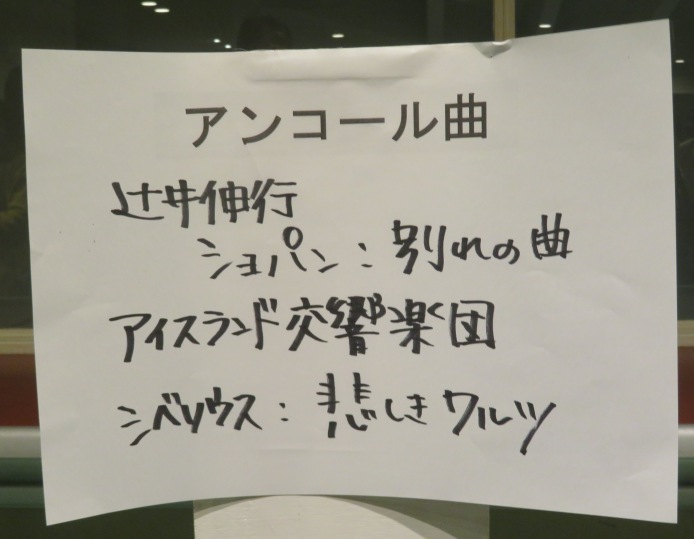 アンコール曲
辻井伸行
ショパン：別れの曲
アイスランド交響楽団
シベリウス：悲しきワルツ